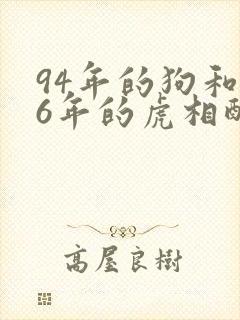 94年的狗和
6年的虎相配
高屋良樹